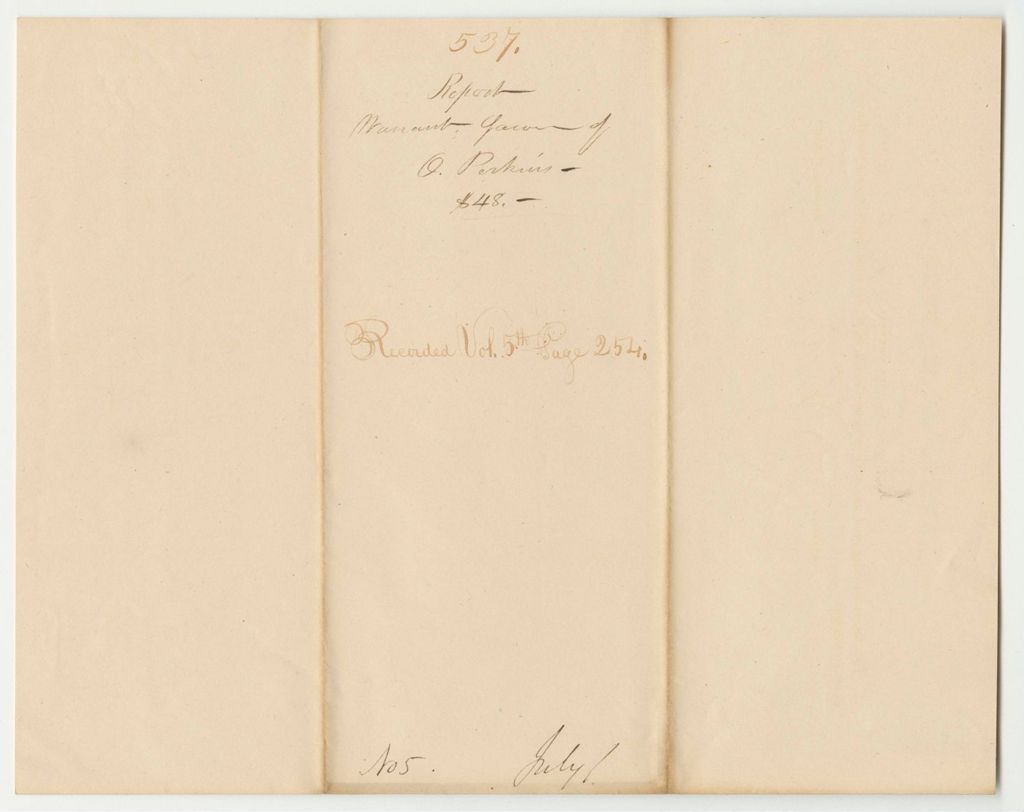 537.
Report
Warrant. favor of
O. Perkins -
$48. -
Recorded Vol. 5th Page 254.
No 5. July 1